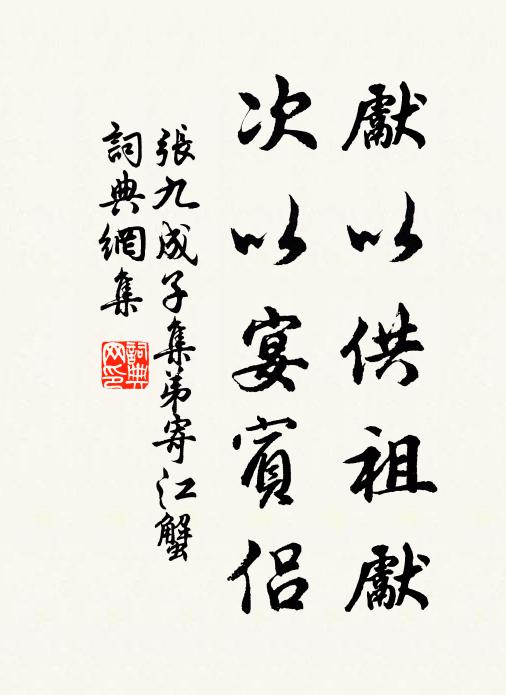 獻以供祖獻
次以宴賓侶
張九成子集弟寄江蟹
詞典網集
詞典网印